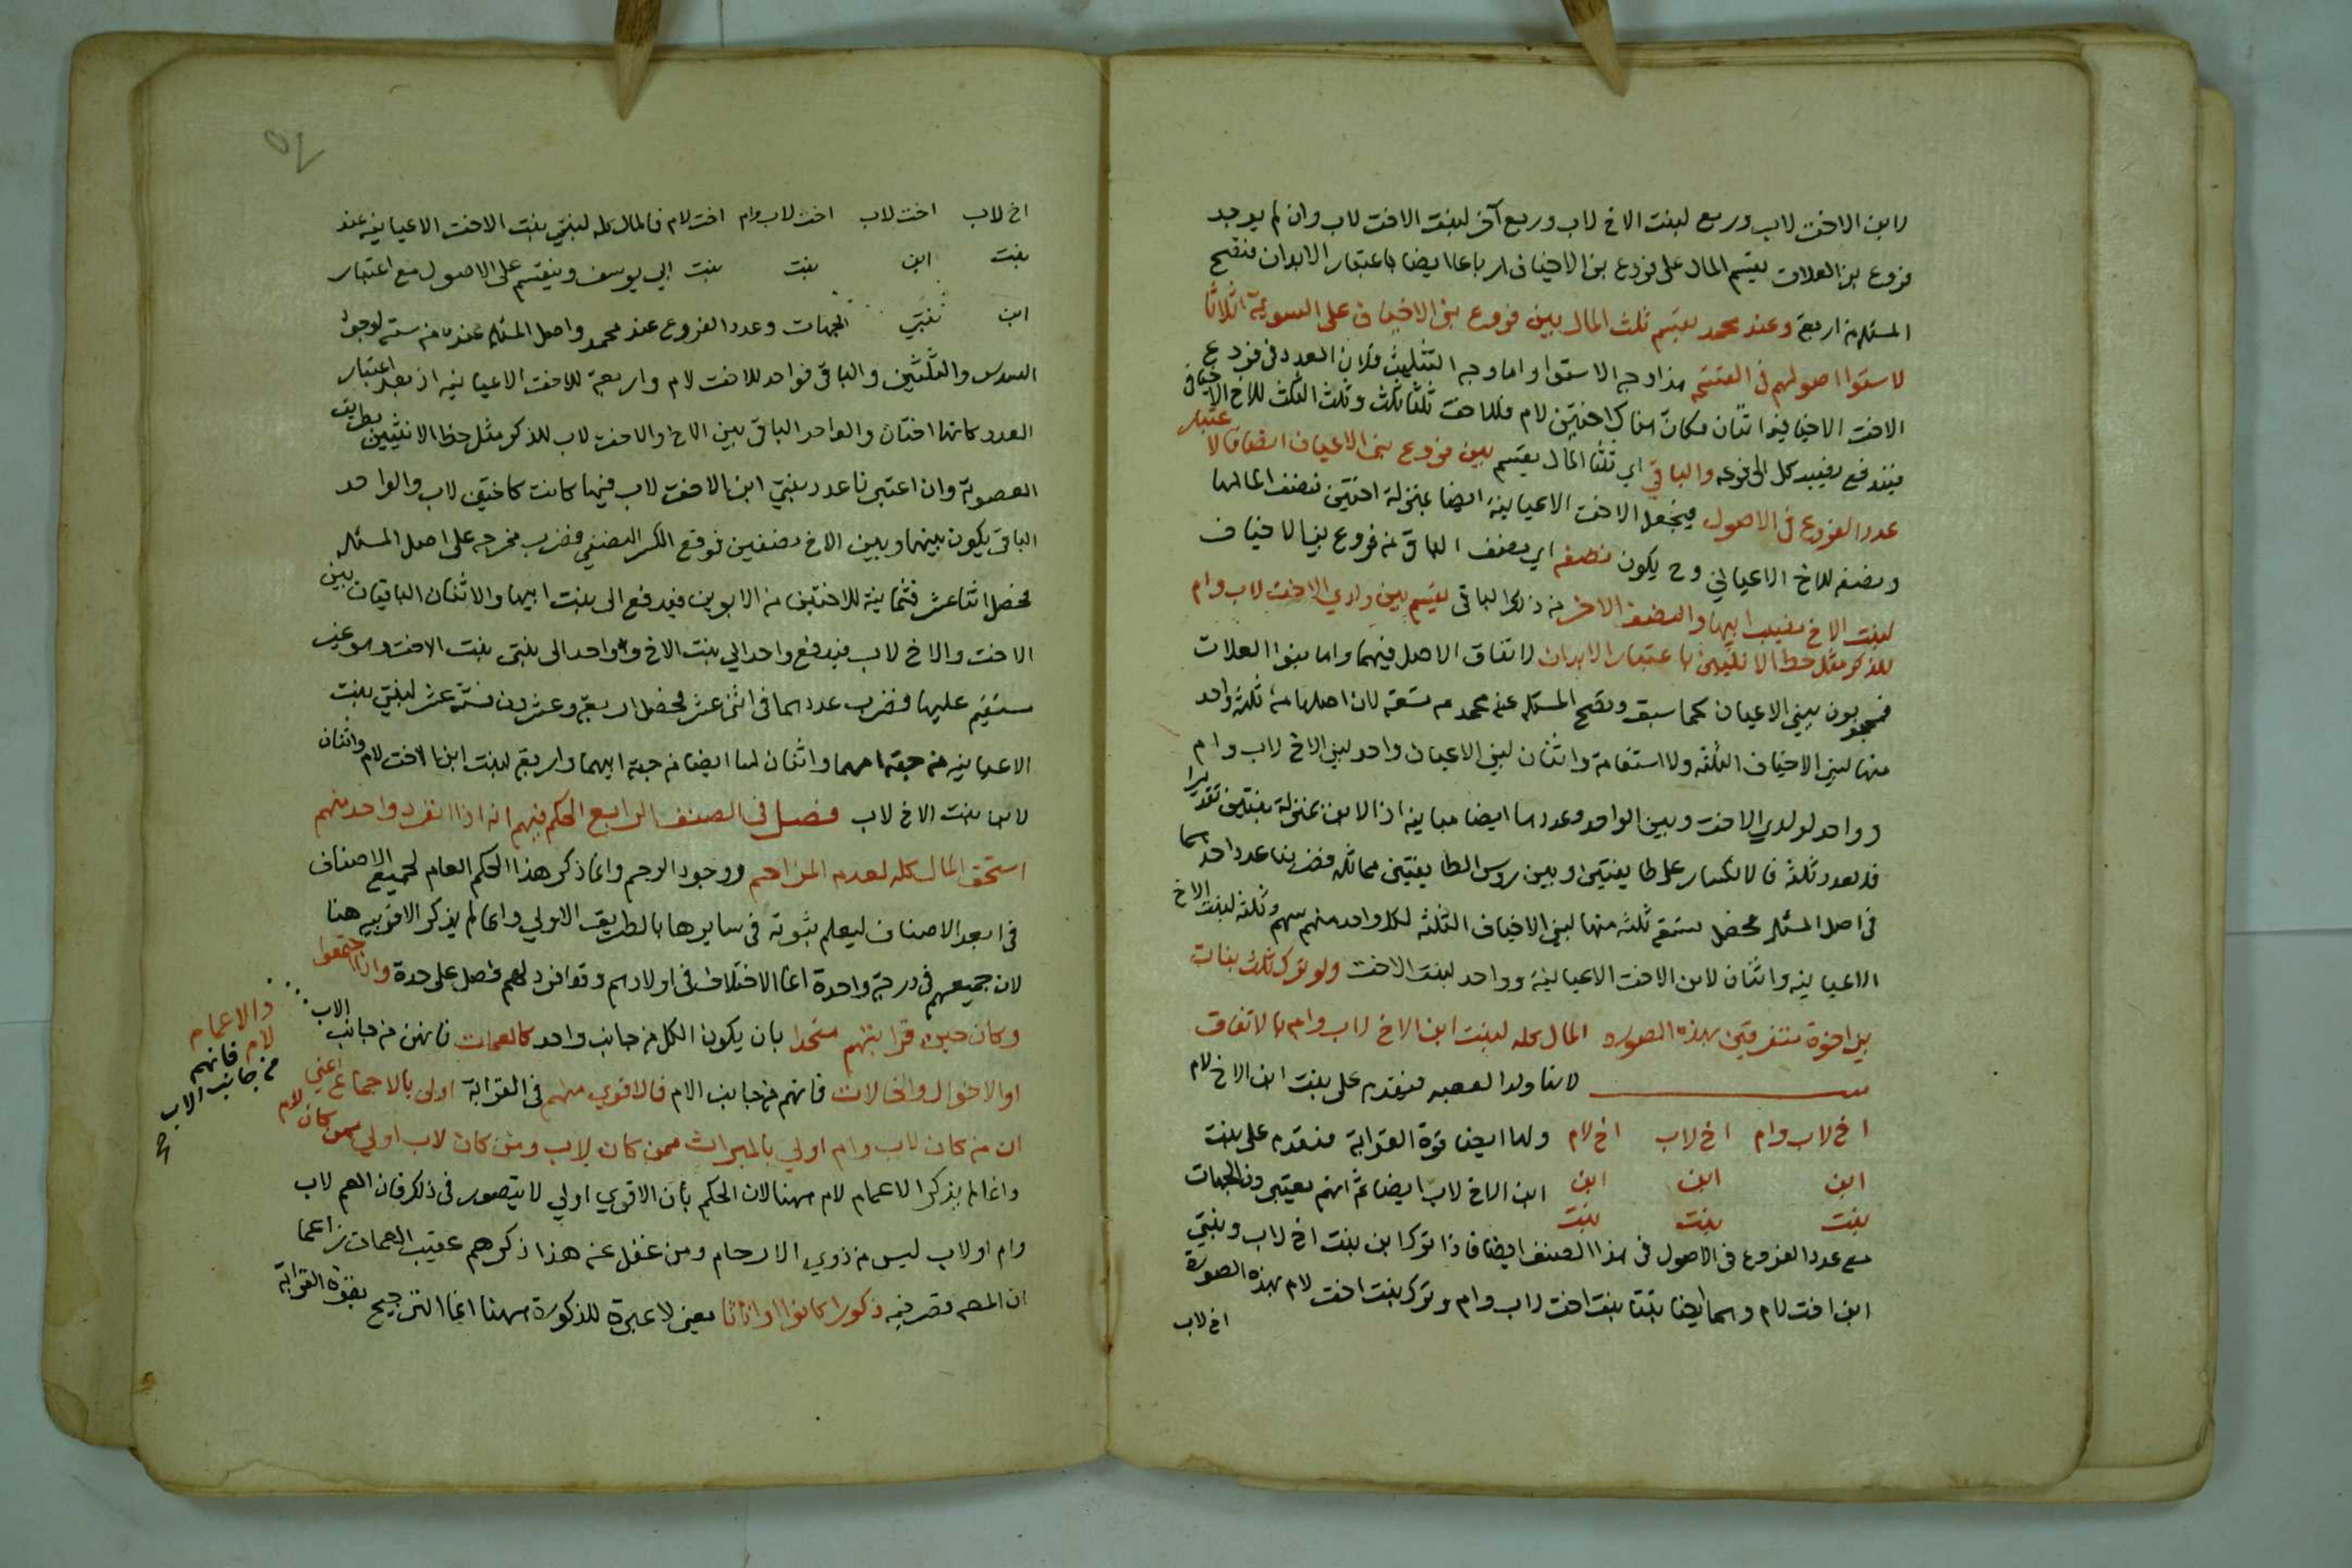 لابن الاخت لاب وربع لبنت الاخ لاب وربع آخر لبنت الاخت لاب وان لم يوجد
فروع بنى العلات يقسم المال على فروع بنى الاخياف ارباعا ايضا باعتبار الابدان فتصح
المسئلة من اربعة وعند محمد يقسم ثلث المال بين فروع بنى الاخياف على السوية اثلاثا
لاستوا اصولهم فى القسمة هذا وجه الاستوا واما وجه التثليث فلان العدد فى فروع
الاخت الاخيافية اثنان فكان هناك اختين لام فللاخت ثلثا ثلث وثلث الثلث للاخ الاخيافى
فيندفع نصيب كل الى فرعه والباقي اي ثلثا المال يقسم بين فروع بنى الاعيان انصافا لاعتبار
عدد الفروع فى الاصول فيجعل الاخت الاعيانية ايضا بمنزلة اختين فنصف المال لهما
ونصفه للاخ الاعياني وح يكون نصفه اي نصف الباقى من فروع بنى الاخياف
لبنت الاخ نصيب ابيها والنصف الاخر من ذلك الباقى يقسم بين ولدي الاخت لاب وام
للذكر مثل حظ الانثيين باعتبار الابدان لاتفاق الاصل فيهما واما بنوا العلات
فمحجوبون ببنى الاعيان كما سبق وتصح المسئلة عند محمد من تسعة لان اصلها من ثلثة واحد
منها لبنى الاخياف الثلثة ولا استقامة واثنان لبنى الاعيان واحد لبنى الاخ لاب وام
وواحد لولدي الاخت وبين الواحد وعددهما ايضا مباينة اذ الابن بمنزلة بنتين تقديرا
فالعدد ثلثة فالانكسار على طايفتين وبين روس الطايفتين مماثلة فضربنا عدد احدهما
فى اصل المسئلة فحصل تسعة ثلثة منها لبنى الاخياف الثلثة لكل واحد منهم سهم وثلثة لبنت الاخ
الاعيانية واثنان لابن الاخت الاعيانية وواحد لبنت الاخت ولو ترك ثلث بنات
بنى اخوة متفرقين بهذه الصورة المال كله لبنت ابن الاخ لاب وام بالاتفاق
لانها ولد العصبه فتقدم على بنت ابن الاخ لام
اخ لاب وام اخ لاب اخ لام ولها ايضا قوة القرابة فتقدم على بنت
ابن ابن ابن ابن الاخ لاب ايضا ثم انهم يعتبرون الجهات
بنت بنت بنت
مع عدد الفروع فى الاصول فى هذا الصنف ايضا فاذا ترك ابن بنت اخ لاب وبنتي
ابن اخت لام وهما ايضا بنتا بنت اخت لاب وام وترك بنت اخت لام بهذه الصورة
اخ لاب
اخ لاب اخت لاب اخت لاب وام اخت لام فالمال كله لبنتي بنت الاخت الاعيانية عند
بنت ابن بنت بنت ابي يوسف وينقسم على الاصول مع اعتبار
ابن بنتي الجهات وعدد الفروع عند محمد واصل المسئلة عنده من ستة لوجود
السدس والثلثين والباقى فواحد للاخت لام واربعة للاخت الاعيانيه اذ بعد اعتبار
العدد كانها اختان والواحد الباقى بين الاخ والاخت لاب للذكر مثل حظ الانثيين بطريق
العصوبة وان اعتبرنا عدد بنتي ابن الاخت لاب فيها كانت كاختين لاب والواحد
الباقى يكون بينها وبين الاخ نصفين فوقع الكسر النصفي فضرب مخرجه على اصل المسئلة
فحصل اثنا عشر فثمانية للاختين من الابوين فيدفع الى بنت ابيها والاثنان الباقيان بين
الاخت والاخ لاب فيدفع واحد الي بنت الاخ وواحد الى بنتى بنت الاخت وهو غير
مستقيم عليها فضرب عددهما فى اثنى عشر فحصل اربعة وعشرون فستة عشر لبنتي بنت
الاعيانية من جهة امهما واثنان لهما ايضا من جهة ابيهما واربعة لبنت ابن الاخت لام واثنان
لابن بنت الاخ لاب فصل فى الصنف الرابع الحكم فيهم انه اذا انفرد واحد منهم
استحق المال كله لعدم المزاحم ووجود الرحم وانما ذكر هذا الحكم العام لجميع الاصناف
فى ابعد الاصناف ليعلم ثبوته فى سايرها بالطريق الاولي وانما لم يذكر الاقربيه هنا
لان جميعهم فى درجة واحدة انما الاختلاف فى اولادهم وقد افرد لهم فصل على حدة واذا اجتمعوا
وكان حيز قرابتهم متحدا بان يكون الكل من جانب واحد كالعمات فانهن من جانب الاب
والاعمام
لام فانهم
من جانب الاب
صح
او الاخوال والخالات فانهم من جانب الام فالاقوي منهم فى القرابة اولى بالاجماع اعني
ان من كان لاب وام اولي بالميراث ممن كان لاب ومن كان لاب اولي ممن كان لام
وانما لم يذكر الاعمام لام ههنا لان الحكم بأن الاقوي اولي لا يتصور فى ذلك فان العم لاب
وام او لاب ليس من ذوي الارحام ومن غفل عن هذا ذكرهم عقيب العمات زاعما
ان المصـ قصر فيه ذكورا كانوا او اناثا يعنى لا عبرة للذكورة ههنا انما الترجيح بقوة القرابة